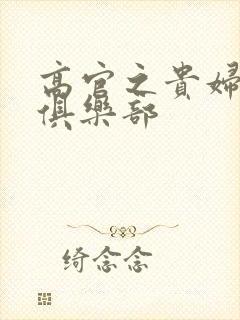 高官之貴婦
俱樂部
绮念念